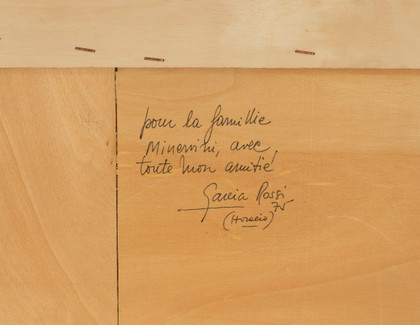 pour la famillie
Minervini, avec
toute mon amitié
Garcia Rossi
75
(Horacio)